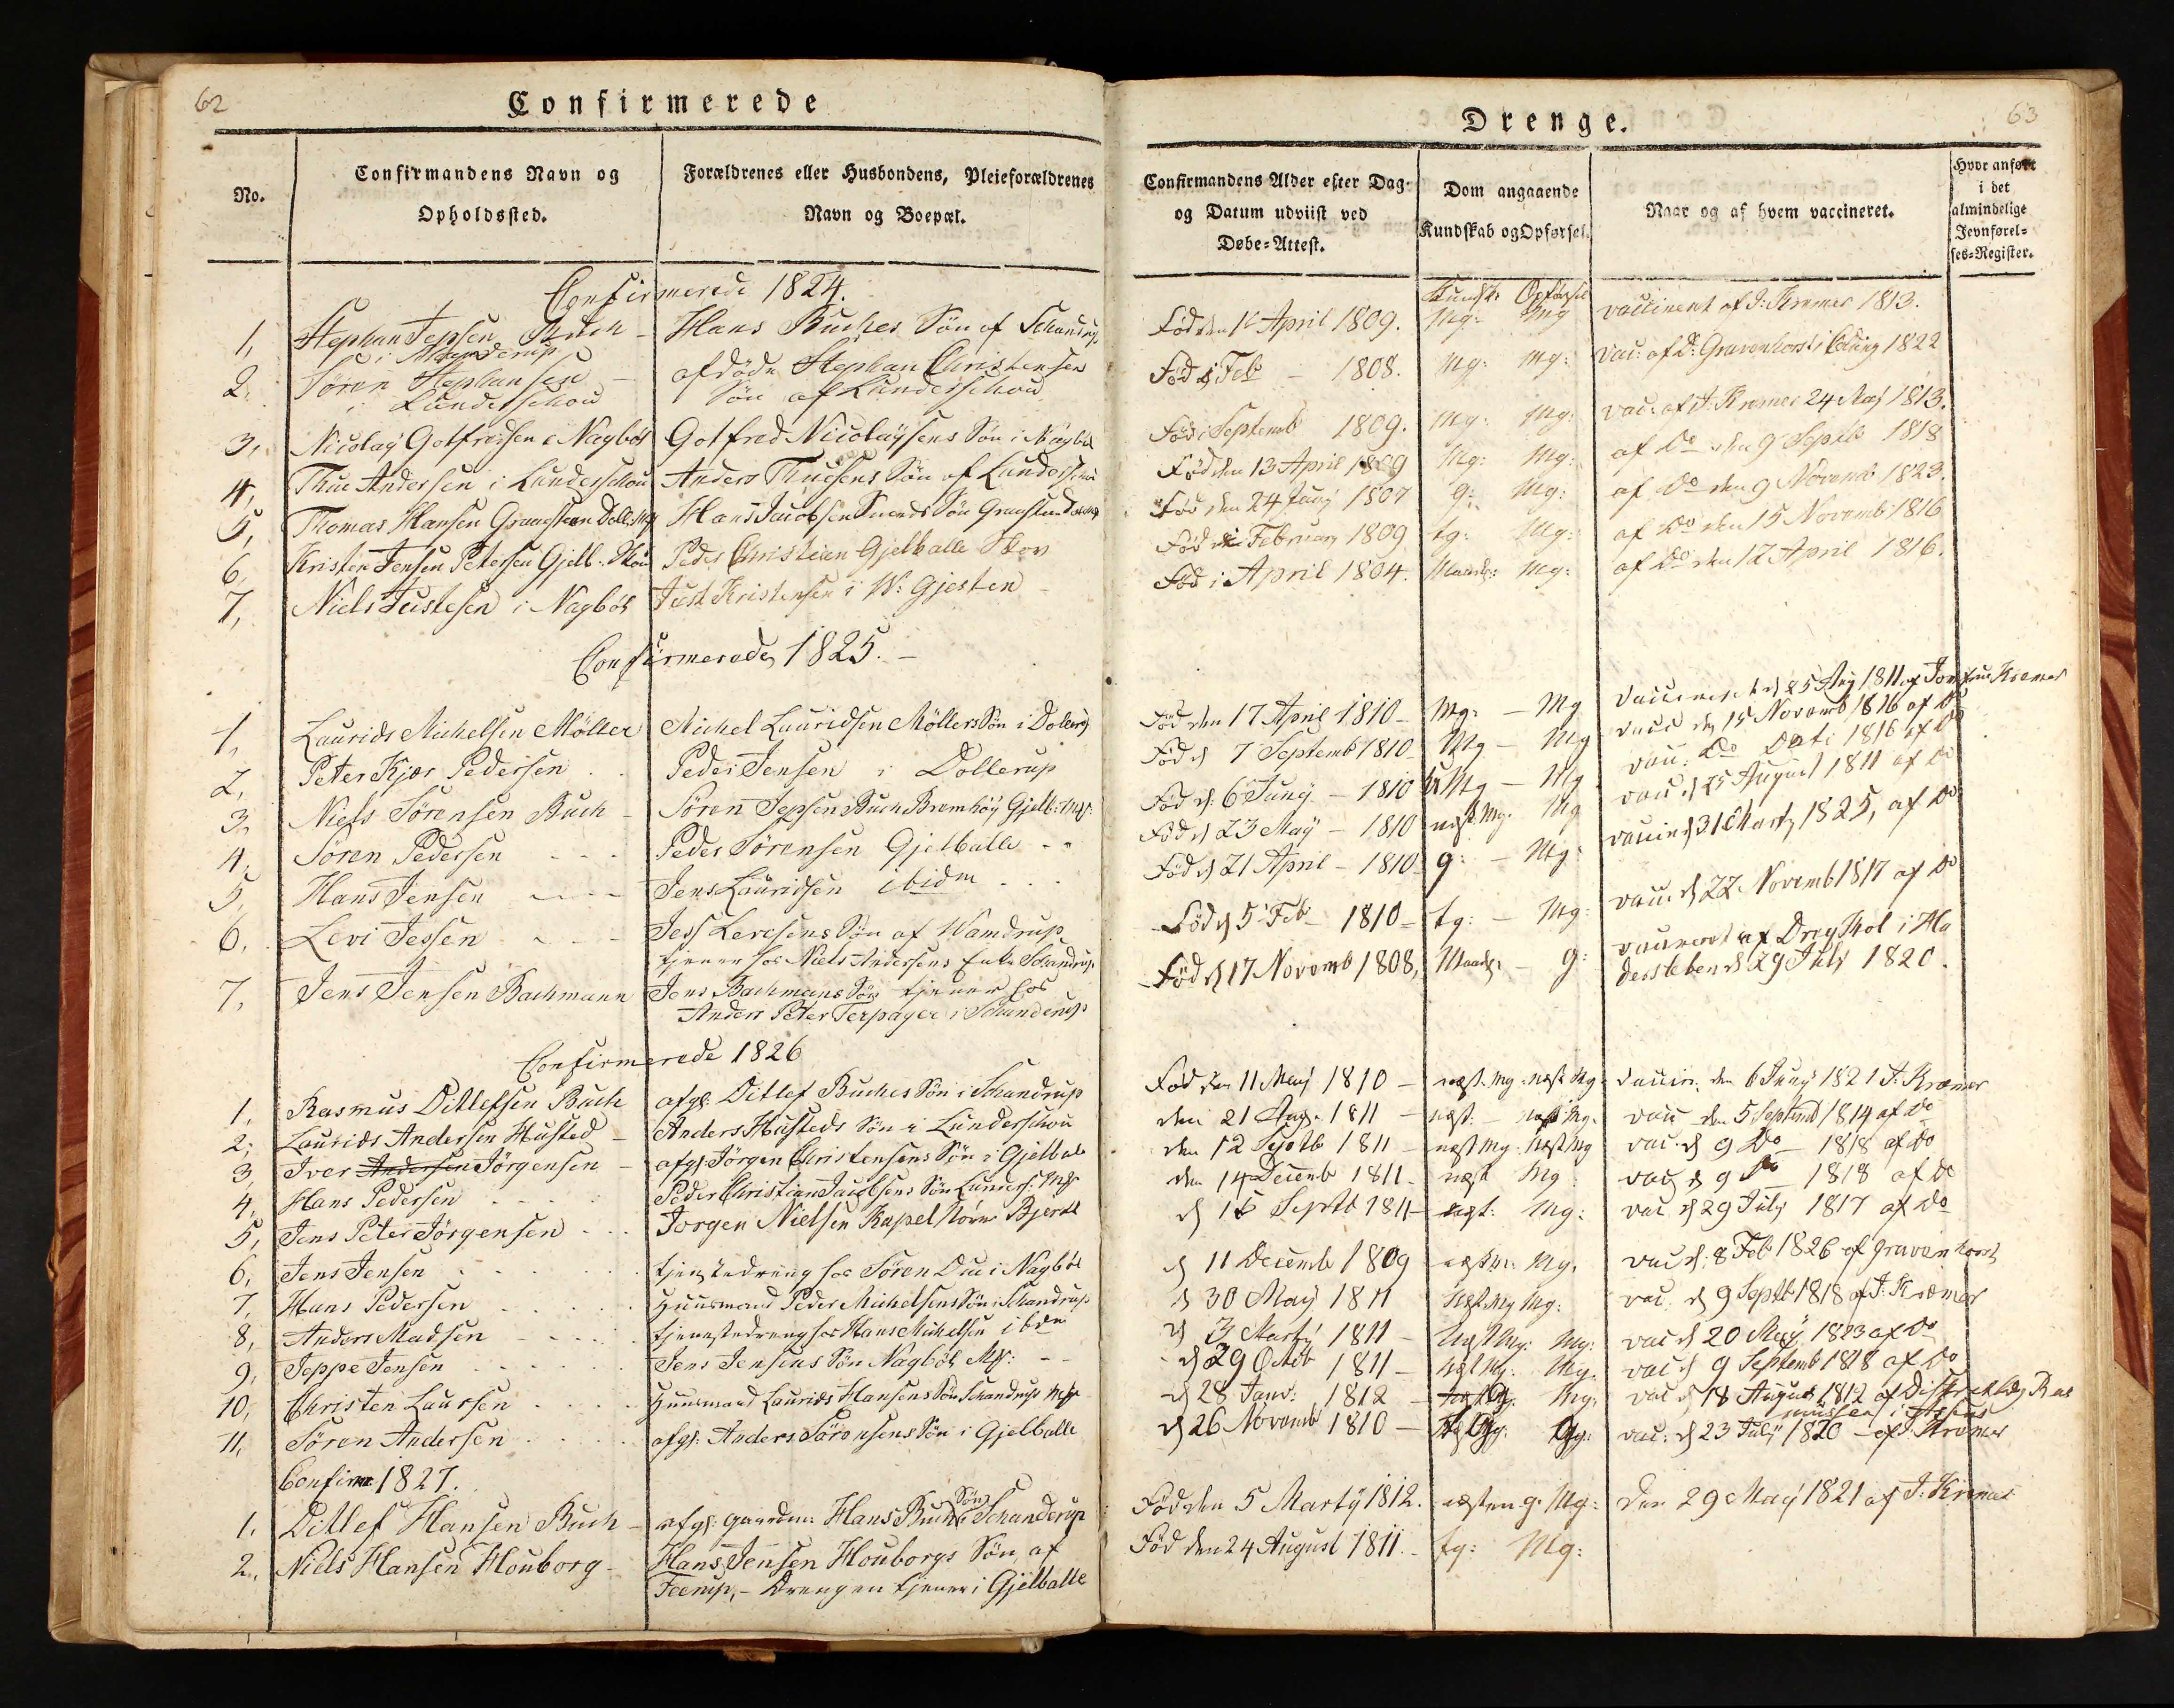 62
Confirmerede
No.
Confirmandens Navn og
Opholdssted.
Forældrenes eller Husbondens, Pleieforældrenes
Navn og Boepæl.
Confirmerede 1824.
1, Stephan Jepsen Buch - Hans Buches Søn af Schandrup
i Schanderup
2. Søren Stephansen - afdöde Stephan Christensen
i Lunderschou Søn af Lunderschou
3, Nicolaÿ Gotfredsen Nagböl Gotfred Nicolaÿsens Søn i Nagböl
4, Thue Andersen i Lunderschou Anders Thuesens Søn af Lunderschou
5, Thomas Hansen Graasteen Doll: Hans Jacobsen Søn Graasteen
6, Kristen Jensen Petersen Gjelb. Skou Peder Christian Gjelballe Skov
7, Niels Justesen i Nagböl Just Kristensen i W: Gjesten
Confirmerede, 1825. -
1, Laurids Michelsen Möller Michel Lauridsen Möllers Søn i Dollerup
2, Peter Kjær Pedersen Peder Jensen i Dollerup
3, Niels Sörensen Buch - Sören Jepsen Buch Bremhöy Gjelb: Mk:
4, Sören Pedersen - - - Peder Sörensen Gjelballe - -
5, Hans Jensen - - - Jens Lauridsen ibidm - - -
6, Levi Jessen - - - Jess Levesens Søn af Wamdrup
tjener hos Niels Andersens Enke Schandrup
7, Jens Jensen Bachmann Jens Bachmans Søn tjener hos
Anders Peter Terpager i Schanderup
Confirmerede 1826
1, Rasmus Ditlefsen Buch afg: Ditlef Buches Søn i Schandrup
2, Laurids Andersen Husted - Anders Husteds Søn i Lunderschou
3, Iver Andersen Jörgensen - afg: Jörgen Christensens Søn i Gjelballe
4, Hans Pedersen - - - Peder Christian Jacobsens Søn Lunders: Mk
5, Jens Peter Jörgensen - - - Jorgen Nielsen Kapelskov Bjerdt
6, Jens Jensen - - - tjenestedreng hos Sören Due i Nagböl
7, Hans Pedersen - - - Huusmand Peder Michelsens Søn i Schandrup
8, Anders Madsen - - - tjenestedreng hos Hans Michelsen ibdm
9, Jeppe Jensen - - - Jens Jensens Søn Nagböl Mk: - -
10, Christen Laursen - - - Huusmand Laurids Hansens Søn Schandrup Mk
11, Sören Andersen - - - afg: Anders Sörensens Søn i Gjelballe
Confirm: 1827.
1. Ditlef Hansen Buch - afg: Gaardm: Hans Buchs Søn Schanderup
2. Niels Hansen Houborg - Hans Jensen Houborgs Søn, af
- Drengen tjener i Gjelballe
63
Drenge.
Confirmandens Alder efter Dag
og Datum udviist ved
Døbe-Attest.
Dom angaaende
Kundskab og Opførsel.
Naar og af hvem vaccineret.
Hvor anført
i det
almindelige
Jevnførel-
ses-Register.
Kundsk: Opförsel
Fød den 1 April 1809. Mg: Mg vaccineret af J: Kremer 1813.
Fød i Feb - 1808. Mg: Mg: vac: af Dr: Gravenhorst i Colding 1822
Fød i Septemb 1809. Mg: Mg: vac: af J: Kremer 24 Maj 1813.
Fød den 13 April 1809 Mg: Mg: af Do den 9 Septb 1818
Fød den 24 Junÿ 1807 g: Mg: af Do den 9 Novemb 1823.
Fød Februarÿ 1809 tg: Mg: af Do den 15 Novemb 1816
Fød i April 1804. Maadl: Mg: af Do den 12 April 1816.
Fød den 17 April 1810 - Mg: - Mg vaccineret d 25 Aug 1811 af Jomfrue Kremer
Fød d 7 Septemb 1810 - Mg - Mg vacc d 15 Novemb 1816 af Do
Fød d: 6 Junÿ - 1810 Mg - Mg vacc: Do Dato 1816 af Do
Fød d 23 Maÿ - 1810 næst: Mg: Mg vacc d 25 August 1811 af Do
Fød d 21 April - 1810 - g: - Mg: vaccin d 31 Marts 1825, af Do
Fød d 5 Feb - 1810 - tg: - Mg: vacc: d 22 Novemb 1817 af Do
Fød d 17 Novemb 1808, Maadl: - g: vaccineret af i Ha
dersleben d 29 July 1820.
Fød den 11 Maij 1810 - næst: Mg: næst Mg vaccin: den 6 Junÿ 1821 J: Kræmer
den 21 Aug: 1811 - næst: - næst Mg. vacc den 5 Septemb 1814 af Do
den 12 Septb 1811 - næst Mg: næst Mg vac: d 9 Do - 1818 af Do
den 14 Decemb 1811 - næst Mg: vac d 9 Do 1818 af Do
d 15 Septb 1811 - næst: Mg: vac d 29 July 1817 af Do
d 11 Decemb 1809 Mg. vac d: 8 Feb 1826 af Gravenhorst
d 30 Maÿ 1811 - næst Mg Mg: vac: d 9 Septb 1818 af J: Kræmer
d 3 Martÿ 1811 - næst Mg: Mg: vac d 20 Maÿ 1823 af Do
d 29 Octob 1811 - næst Mg: Mg. vac d 9 Septemb 1818 af Do
d 28 Janv: 1812 - Mg: vac d 18 August 1812 af Districtlæg Ras
mussen i
d 26 Novemb 1810 - vac: d 23 Julÿ 1820 - af J: Kræmer
Fød den 5 Martÿ 1812. næsten g. Mg: Den 29 Maÿ 1821 af J: Kremer
Fød den 24 August 1811. - tg: Mg: